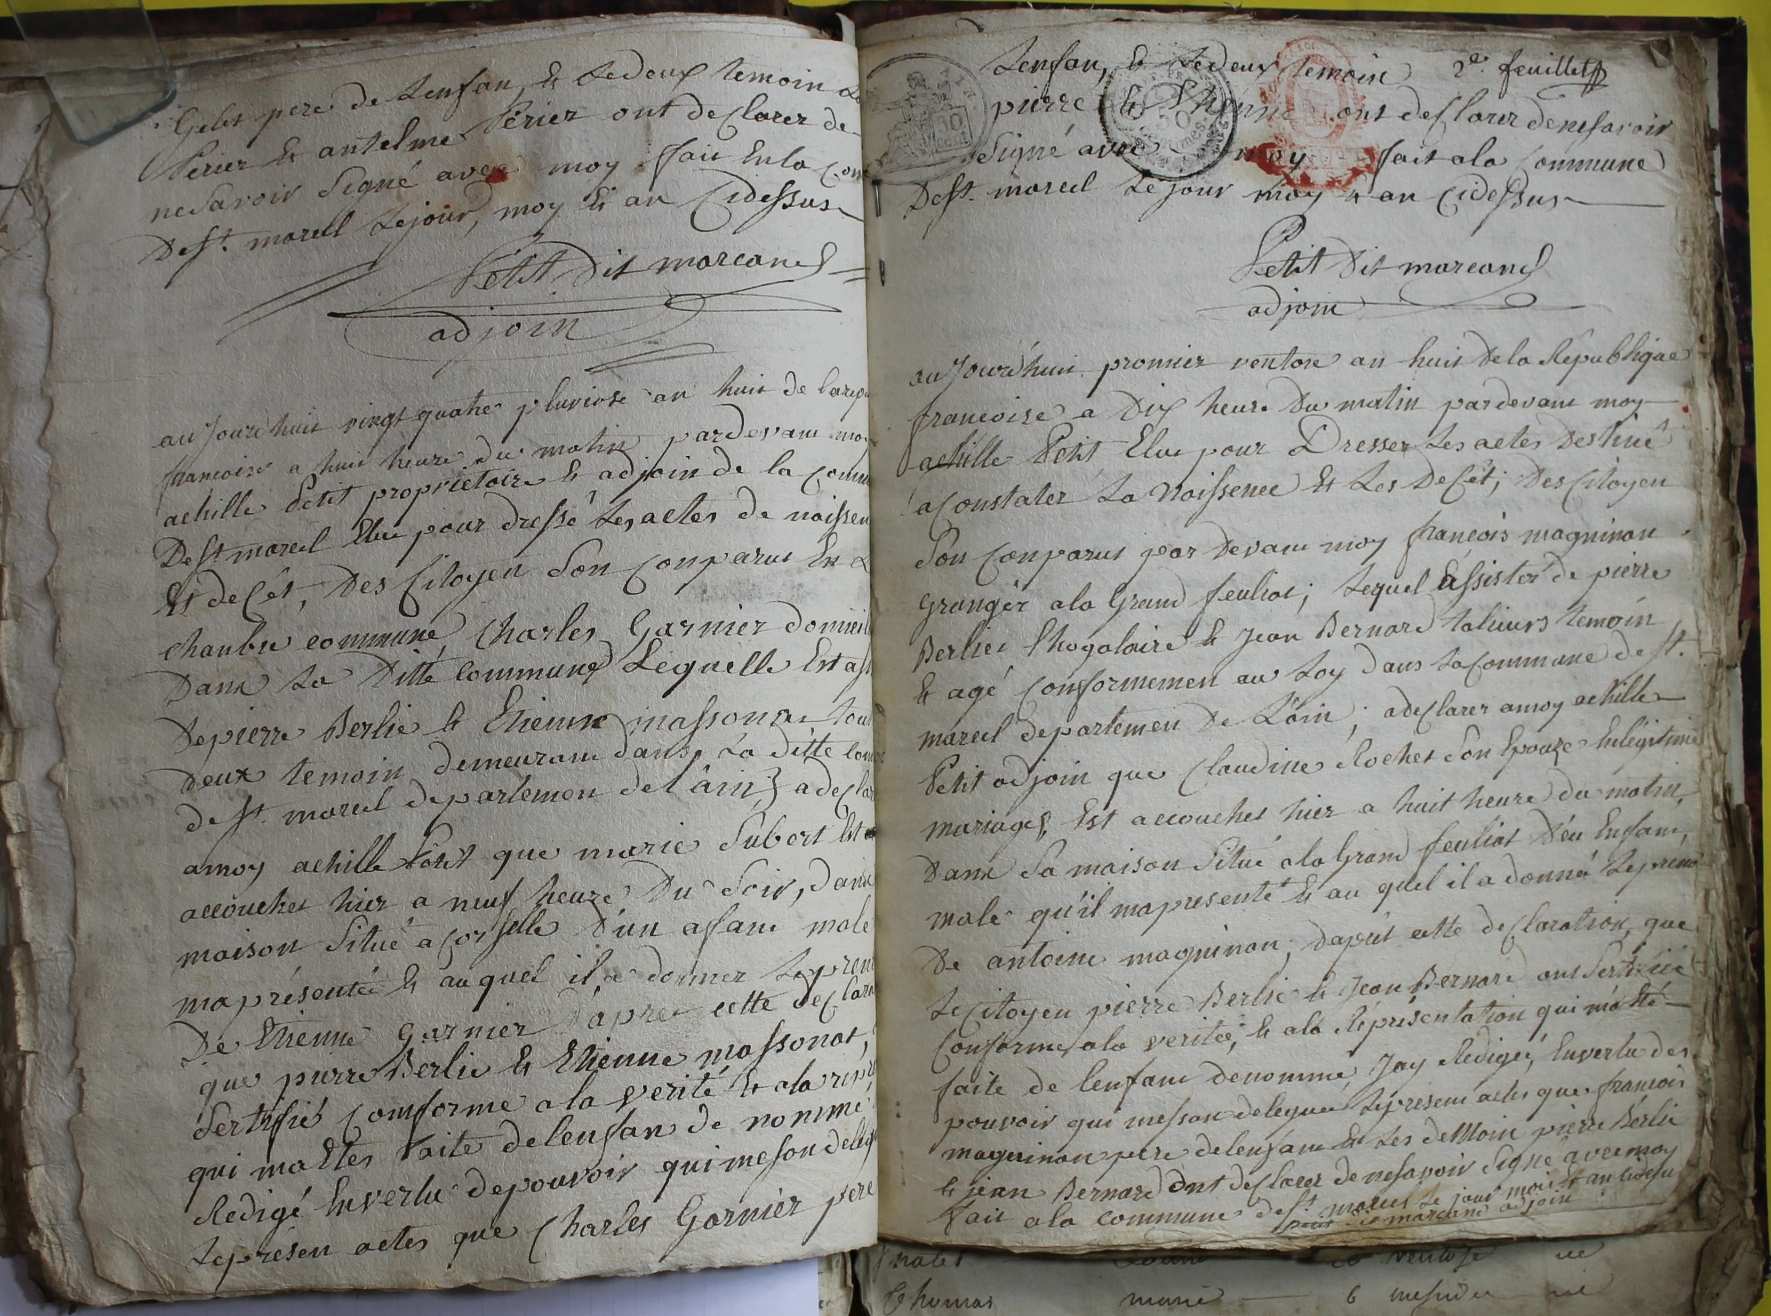 Gelet pere de Lenfan, et Ledeux temoin
Périer et antelme Périer ont deClarer de
nesavoir Signé avec moy fait En la Com
De St. marcel Lejour, moy et an Cidessus
Petit Dit marcand
adjoin
aujourdhuit vingt quatre pluviose an huit de larepu
francoise a huit heure du matin pardevant moy
achille Petit proprietoire et adjoin de la Commu
De St marcel Elue pour dressé Les actes de naissen
Et deCét, Des Citoyen Son Comparut En
chambre commune, Charles Garnier domicili
Dans La Ditte Commune Lequelle Est ass
De pierre Berlie et Etienne massonat tout
deux temoin demeurant dans La ditte com
de St. marcel departemen de l'âin; a deClar
amoy achille Petit que marie Subert Est
accouchet hier a neuf heure Du Soir, Dans
maison Situé a Corselle D'un afant male
ma présenté et auquel il a donner Lepren
De Etienne Garnier D'après cette deClara
que pierre Berlie et Etienne massonat,
Sertifié Comforme a la verité et a la repré
qui ma Etes Faite delenfan de nommé
Redigé Envertu depouvoir qui meson delég
Lepresen actes que Charles Garnier pere
Lenfan, et Ledeux temoin 2e. feuillet
pierre et ont deClarer denesavoir
Signé avec moy fait a la Commune
De St. marcel Lejour moy et an Cidessus
Petit Dit marcand
adjoin
aujourd'huit premier ventose an huit De la Républigue
francoise a Dix heure Du matin pardevant moy
achille Petit Elue pour Dresser Les actes Destiné
a Constater La Naissence Et Les DeCét; Des Citoyen
Son Comparut par Devant moy francois magninon
Granger a la Grand feuliat; Lequel Assister de pierre
Berlie et Jean Bernard temoin
et agé Conformemen au Loy dans La Commune de St.
marcel departemen De L'âin; a deClarer amoy achille
Petit adjoin que Claudine Rochet Son Epouze En legitime
mariage, Est accouchet hier a huit heure du matin,
Dans Sa maison Situé a la Grand feuliat D'eu Enfant,
male qu'il mapresenté Et au quel il a donné Leprénom
De antoine magninon; Dapret cette deClaration, que
Le Citoyen pierre Berlie et Jean Bernard ont Sertifié
Conforme a la verité, et a la Réprésentation qui ma Eté
faite de lenfant denommé, Jay Rédigé, Envertu des
pouvoir qui messon delegué Lepresent actes que francois
magninon pere delenfant Et Les deMoin pierre Berlie
et jean Bernard Ont deClarer denesavoir Signé avec moy
Fait a la Commune de St. marcel Le jour mois et an
petit dit marcand adjoin
Thomas marie 6 messidor